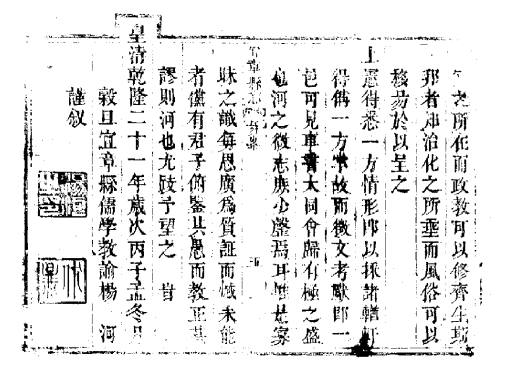 之所在而政教可以修齊生斯
邦者知治化之所重而風俗可以
移易於以呈之
上憲得悉一方情形即以採諸輶軒
得備一方掌故而徵文考獻即一
邑可見車書大同會歸有極之盛
也河之徵志庶少慰焉耳惟是寡
昧之識每思廣為質証而愧未能
者儻有君子俯鑒其愚而教正其
謬則河也尤跂予望之 旹
皇清乾隆二十一年歲次丙子孟冬月
穀旦宜章縣儒學教諭楊 河
謹叙